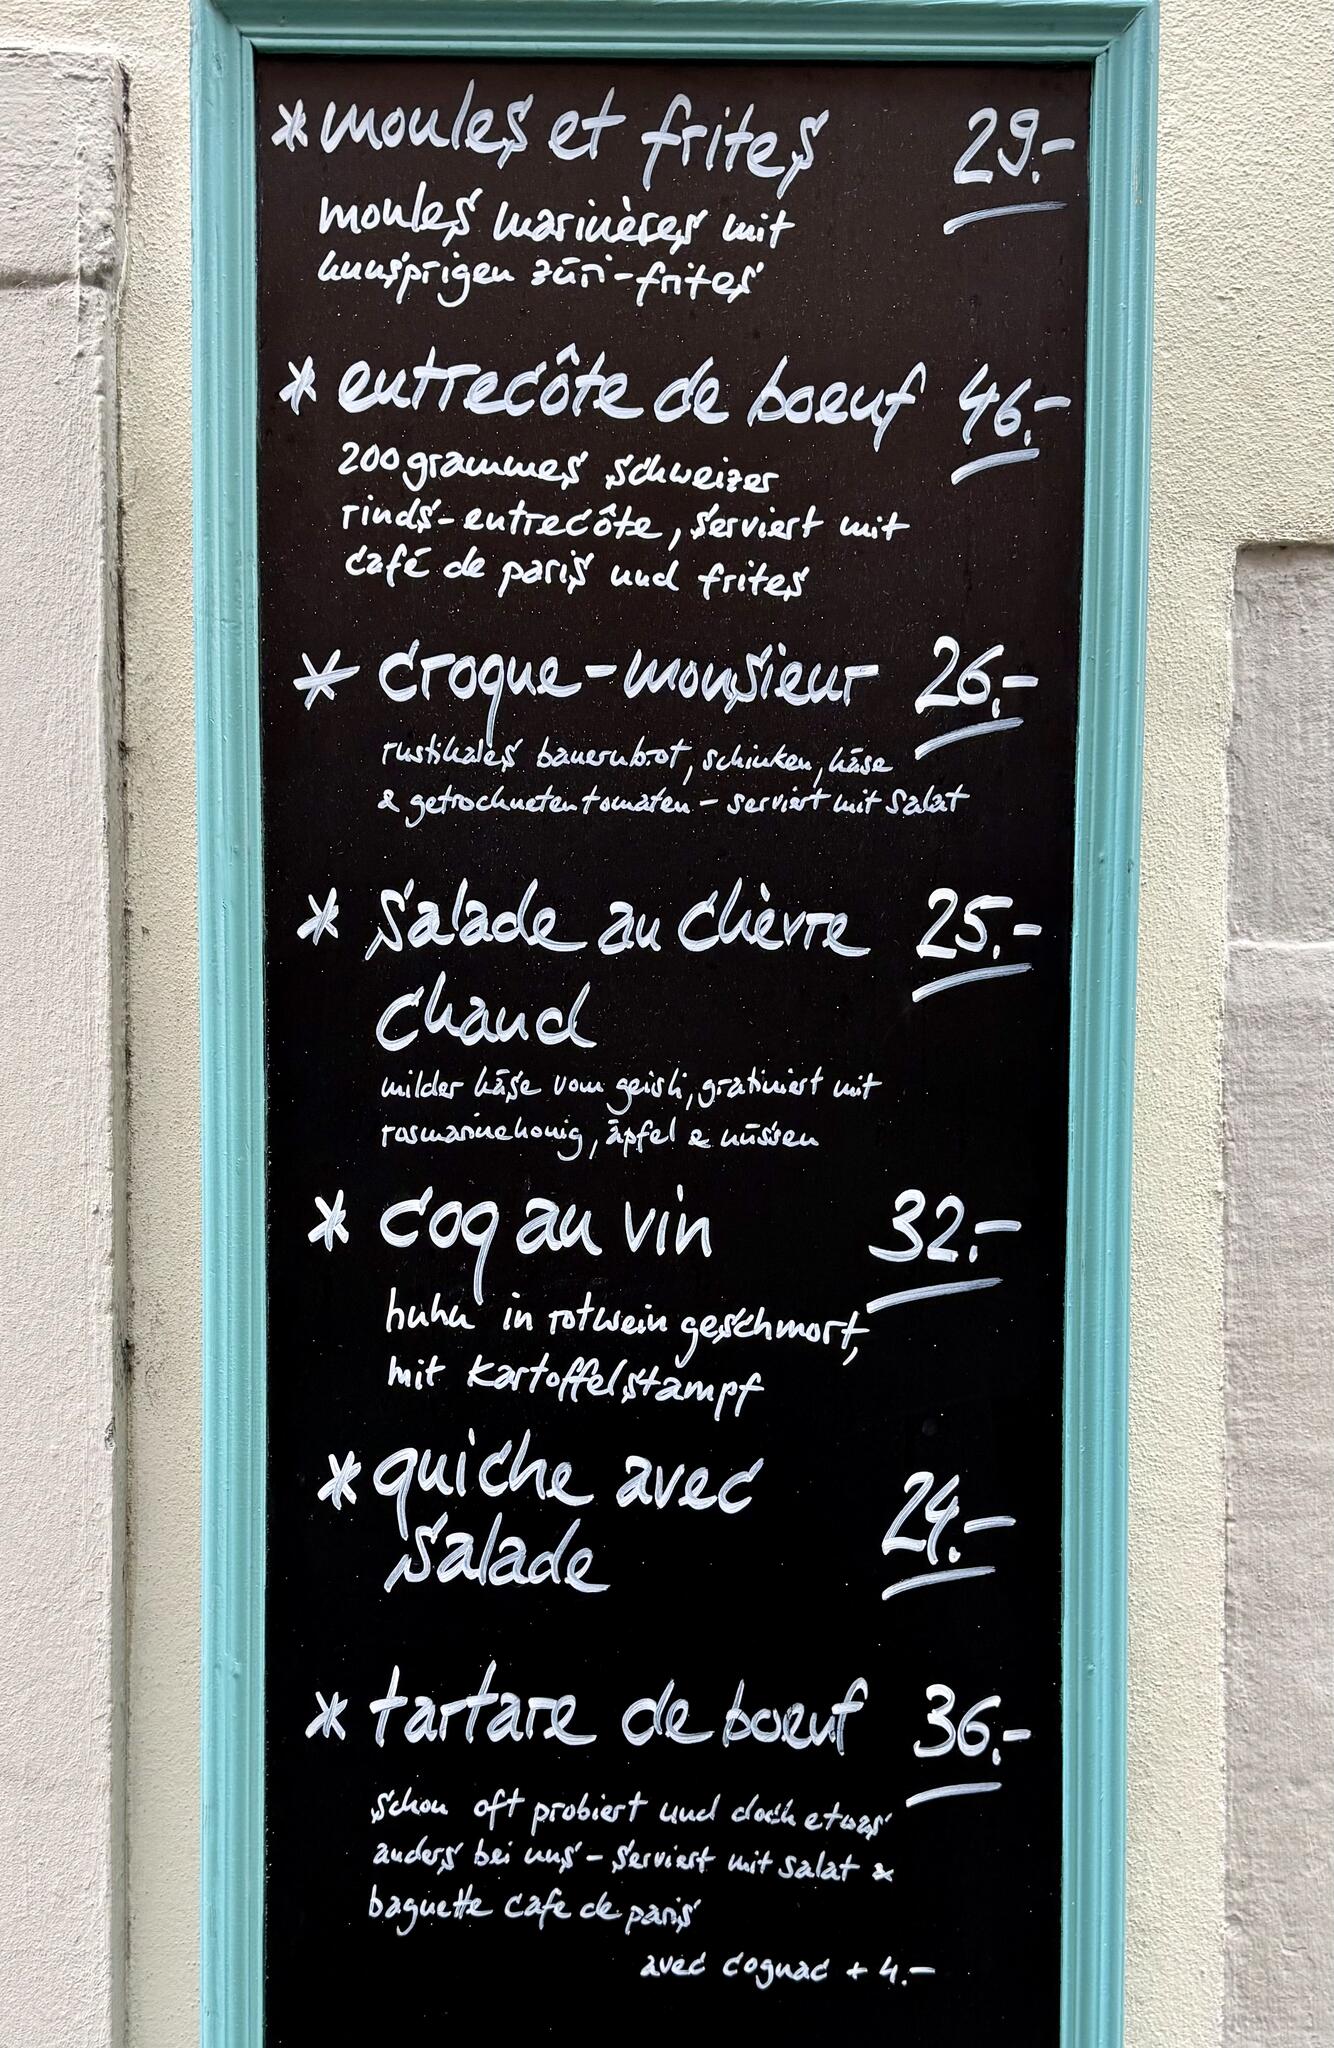 * moules et frites 29.-
moules marinères mit
knusprigen züri-frites
* entrecôte de boeuf 46.-
200 grammes schweizer
rinds-entrecôte, serviert mit
café de paris und frites
* croque-monsieur 26.-
rustikales bauernbrot, schinken, käse
& getrockneten tomaten - serviert mit salat
* salade au chèvre 25.-
chaud
milder käse vom geisli, gratiniert mit
rosmarinehonig, äpfel & nüssen
* coq au vin 32.-
huhn in rotwein geschmort,
mit kartoffelstampf
* quiche avec
salade 24.-
* tartare de boeuf 36.-
schon oft probiert und doch etwas
anders bei uns - serviert mit salat &
baguette cafe de paris
avec cognac + 4.-